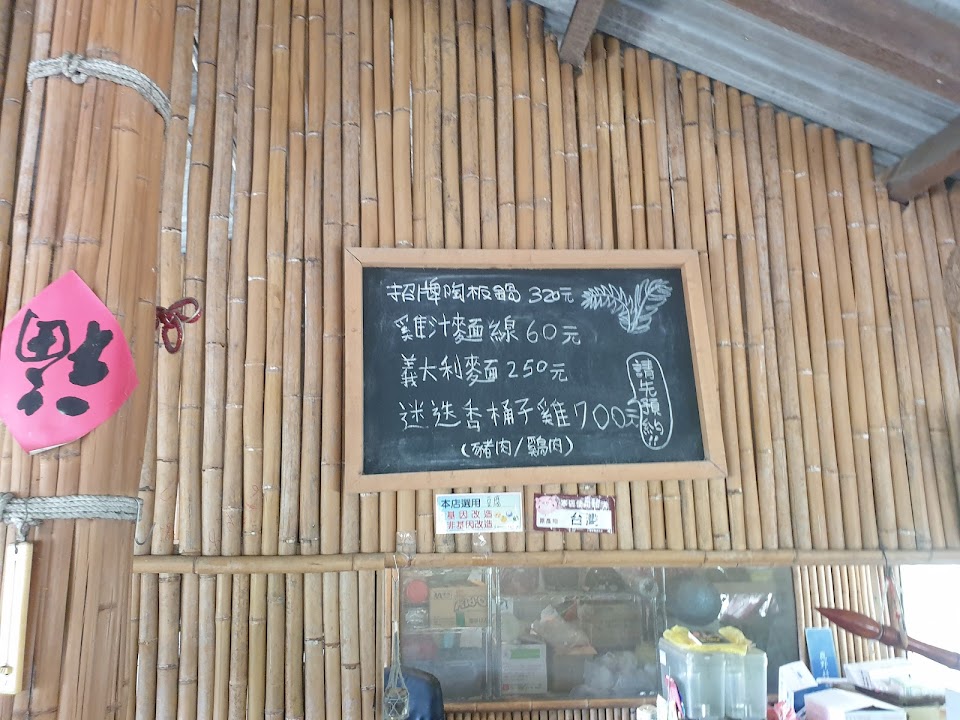 招牌陶板鍋 320元
雞汁麵線 60元
義大利麥面 250元
迷迭香桶子雞 700元
(豬肉/鷄肉)
請先預約!!
福
本店選用
基因改造
非基因改造
台灣